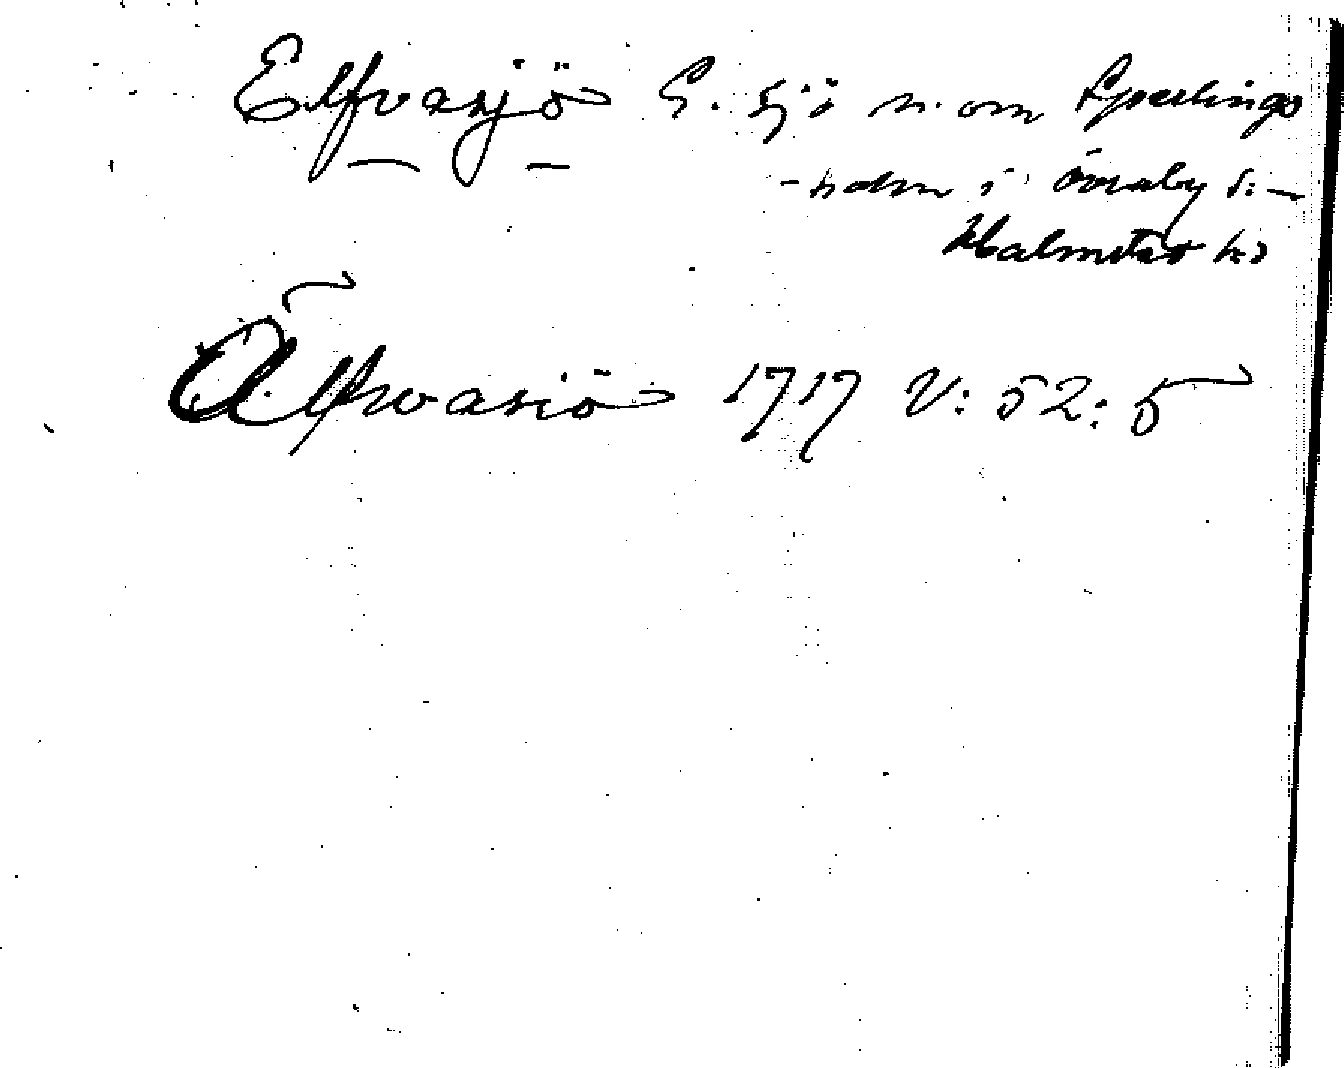 Elfvasjö G. sjö n. om Sperlings
-holm i Övraby s:
Halmstad hd
Älfwasiö 1717 V: 52: 5